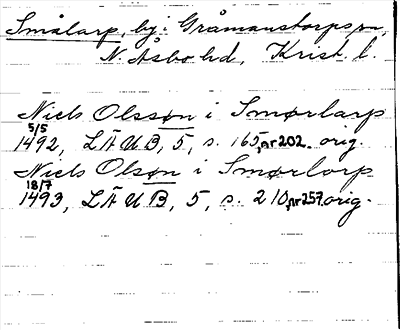 Smålarp, by: Gråmanstorps sn,
N. Åsbo hd, Krist. l.
Niels Olssøn i Smørlarp
5/5
1492, LÄUB, 5, s. 165, nr 202. orig.
Niels Olsøn i Smørlorp
18/7
1493, LÄUB, 5, s. 210, nr 257. orig.